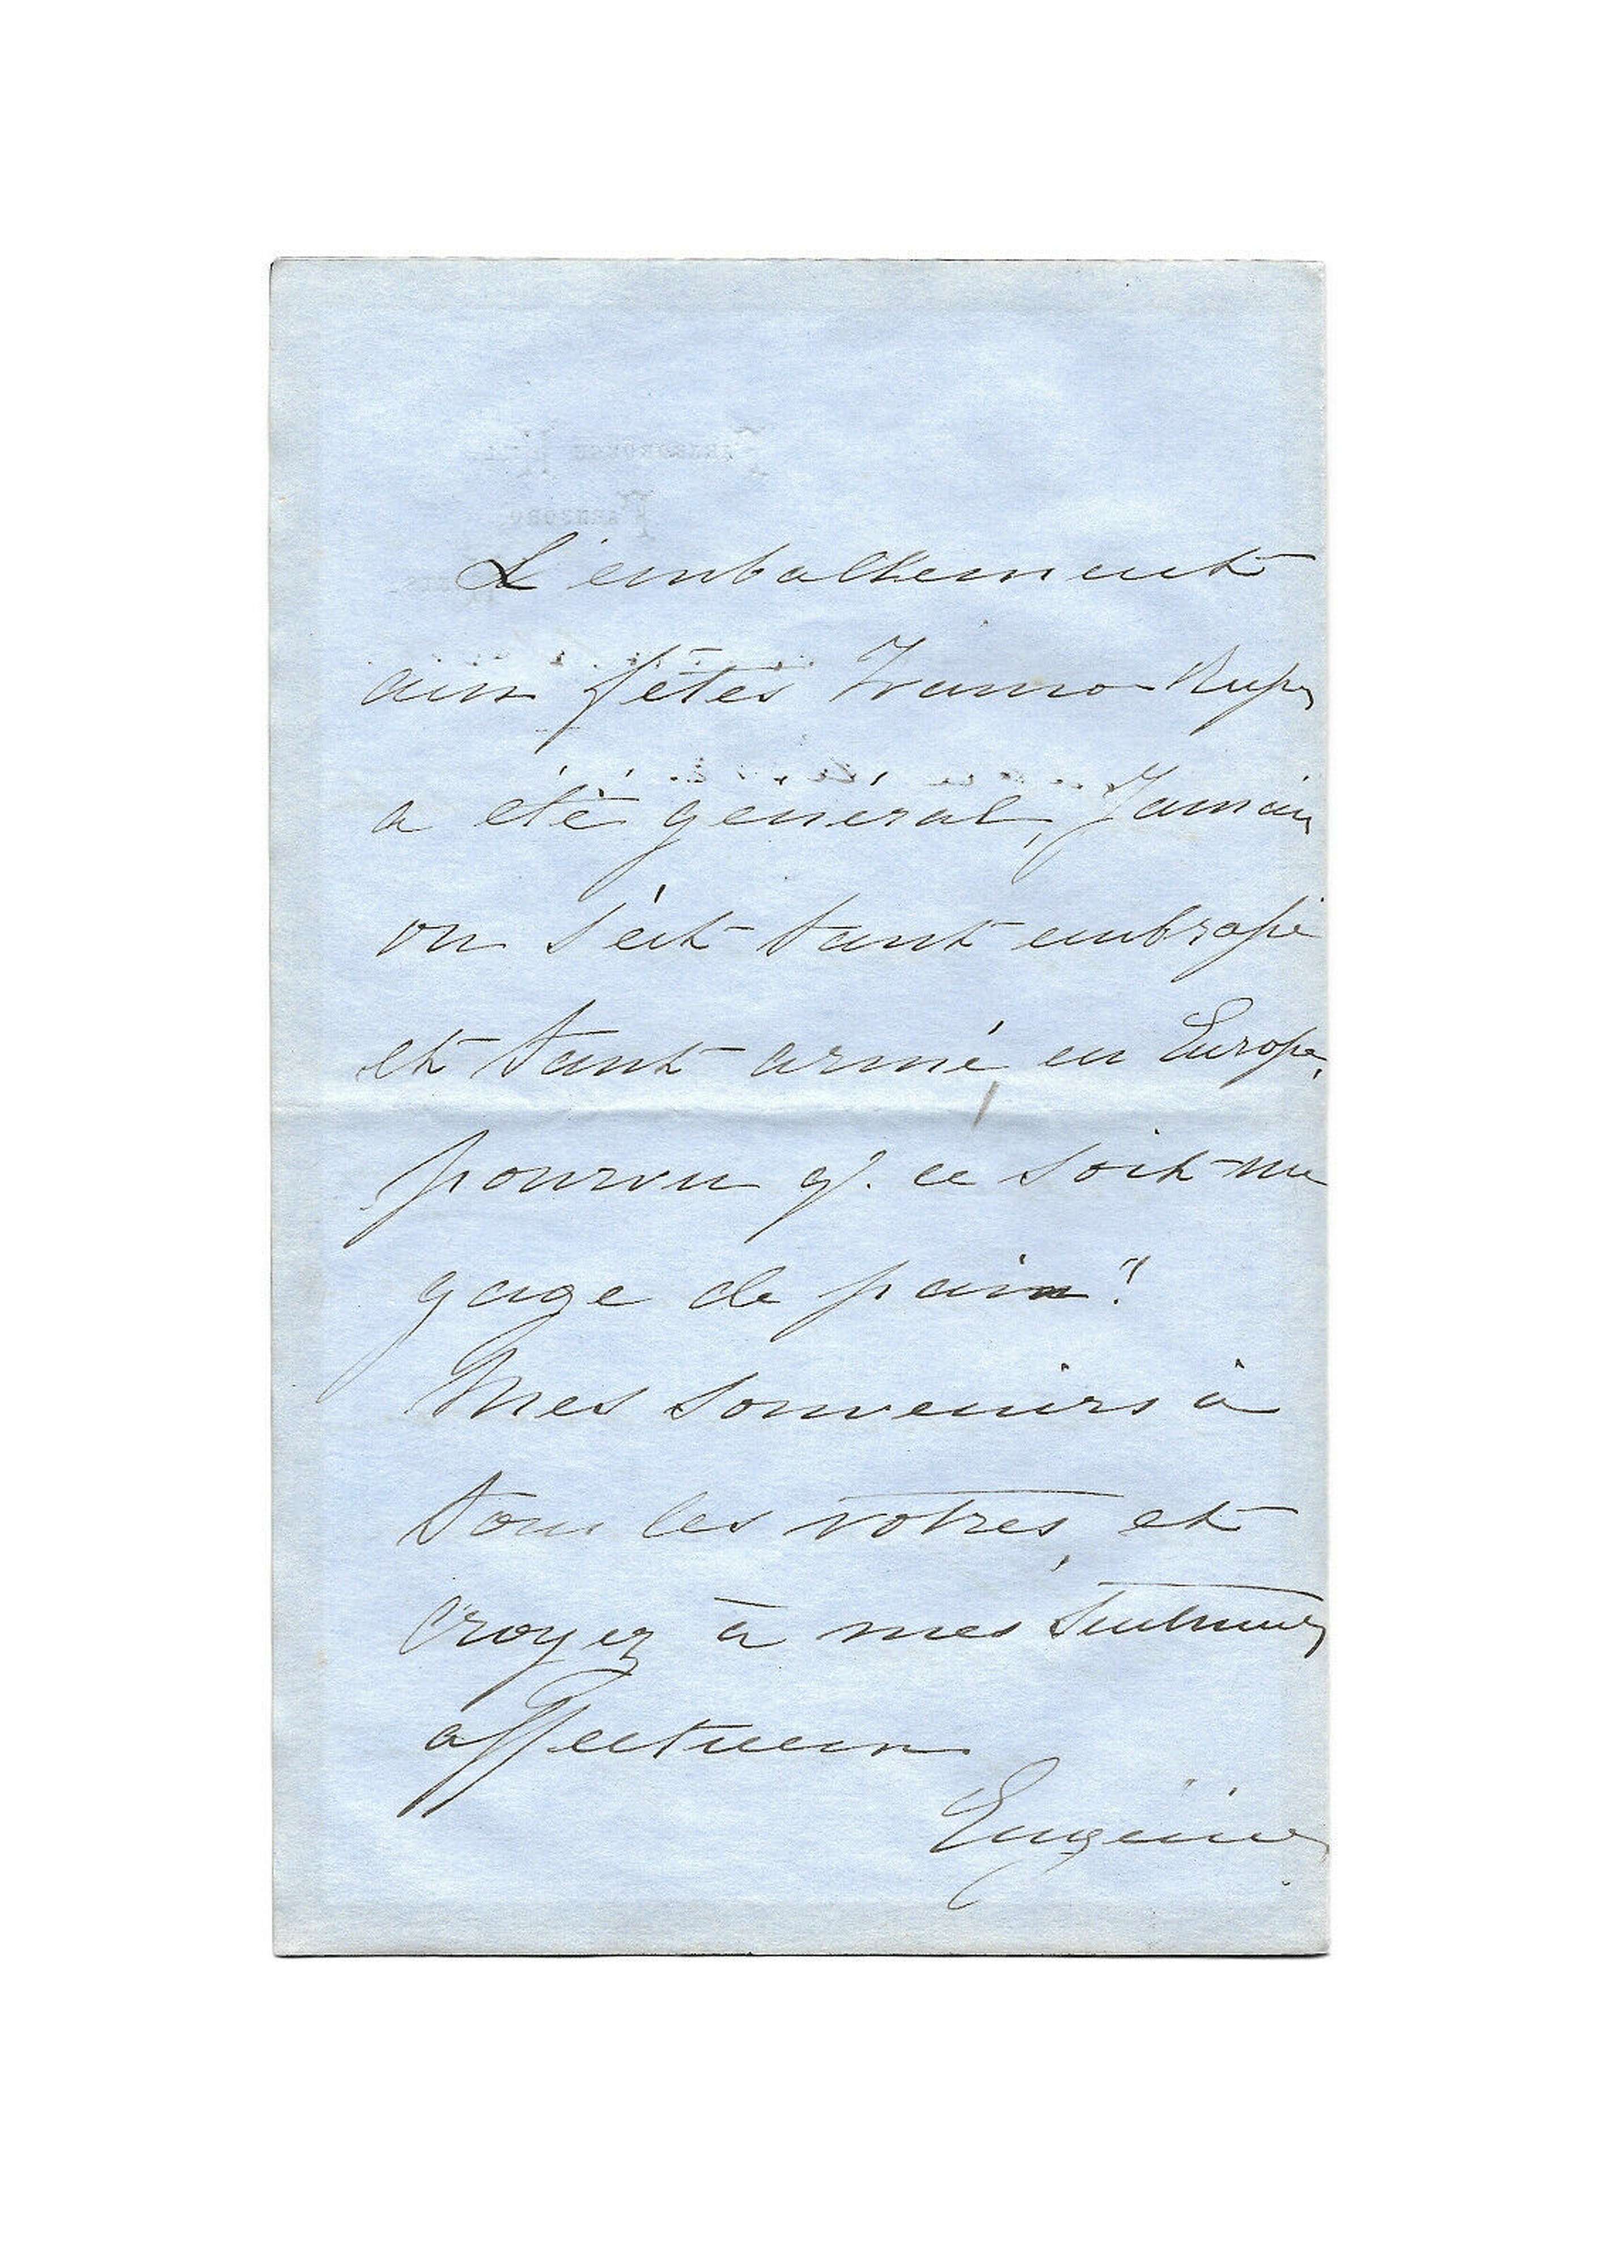 L'emballement
aux fêtes Franco-Russes
a été général, Jamais
on s'est tant embrassé
et tant armé, en Europe,
pourvu q. ce soit un
gage de paix!
Mes souvenirs à
tous les votres, et
croyez à mes sentiments
affectueux
Eugénie